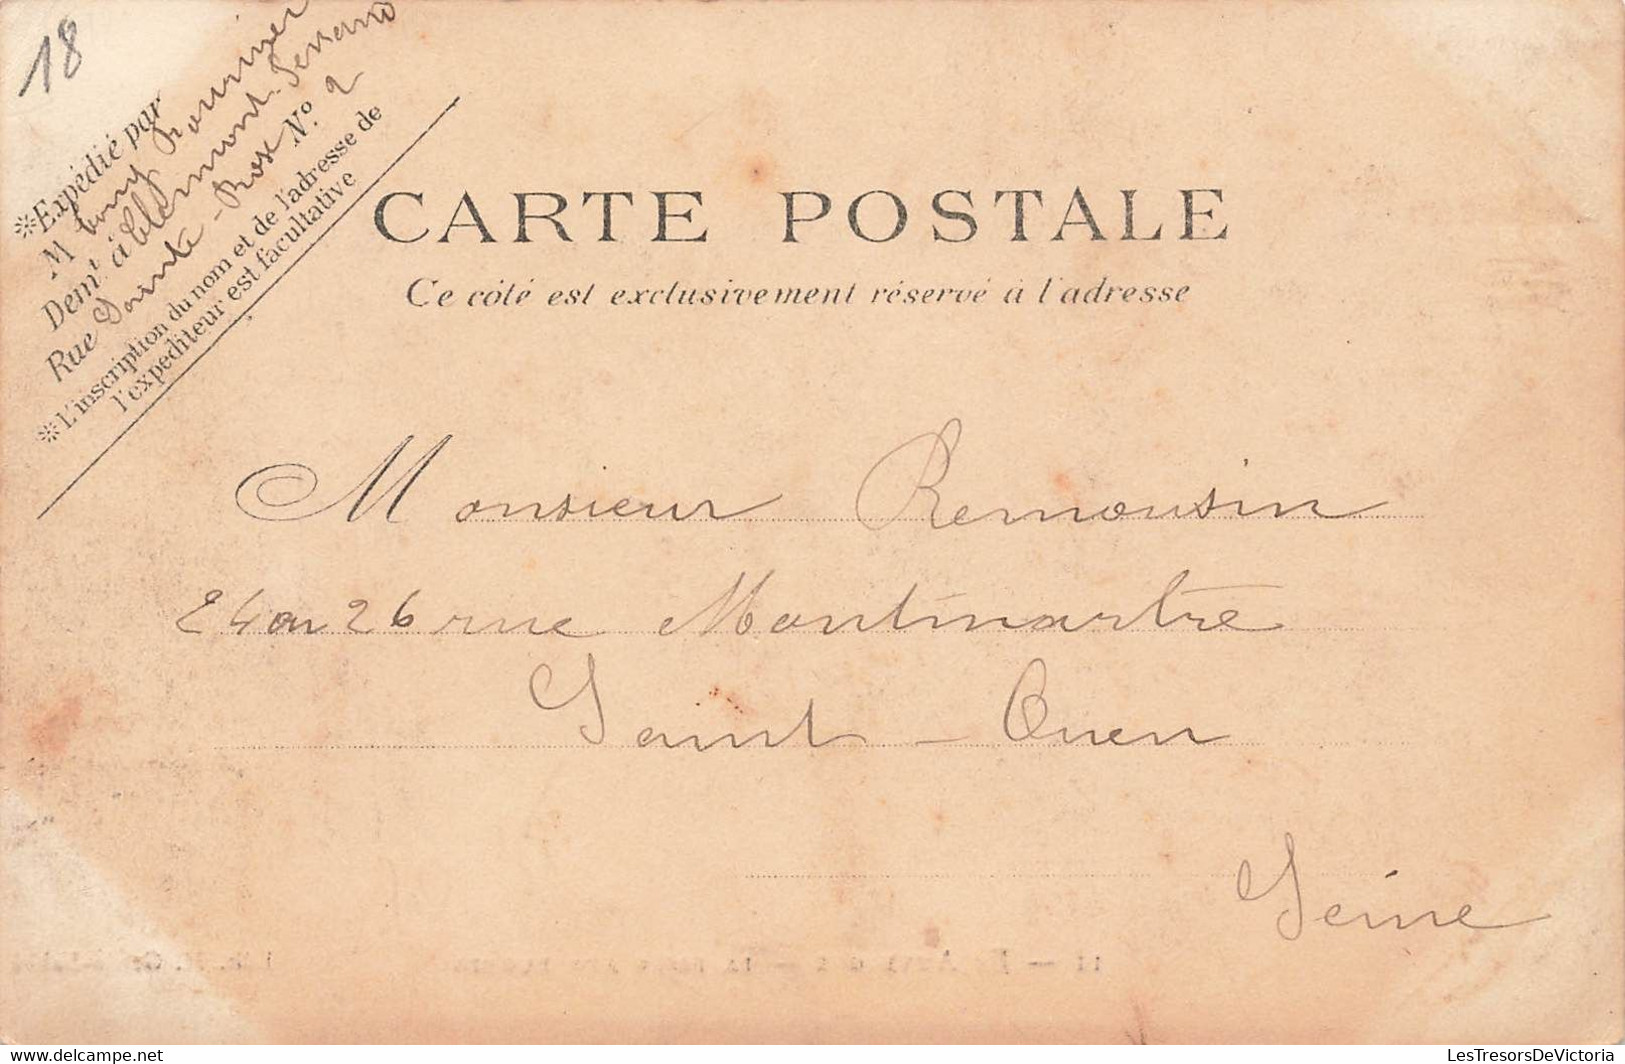 18
※Expédié par
M Tony Fournier
Demt à Clermont-Ferrand
Rue Sainte-Rose No. 2
※L'inscription du nom et de l'adresse de
l'expéditeur est facultative
CARTE POSTALE
Ce côté est exclusivement réservé à l'adresse
Monsieur Remousin
24 ou 26 rue Montmartre
Saint-Ouen
Seine
LesTresorsDeVictoria